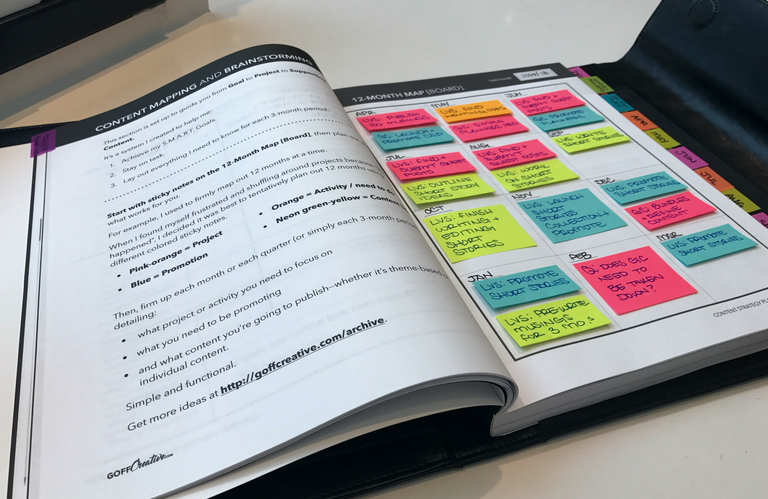 CONTENT MAPPING AND BRAINSTORMING
This section is set up to guide you from Goal to Project to
Content.
It's a system I created to help me:
1. Achieve my S.M.A.R.T. Goals.
2. Stay on task.
3. Lay out everything I need to know for each 3-month period.
Start with sticky notes on the 12-Month Map [Board], then plan
what works for you.
For example, I used to firmly map out 12 months at a time.
When I found myself frustrated and shuffling around projects because
happened" I decided it was best to tentatively plan out 12 months
different colored sticky notes.
• Pink-orange = Project
• Blue = Promotion
• Orange = Activity / need to
• Neon green-yellow = Conte
Then, firm up each month or each quarter (or simply each 3-month
detailing:
• what project or activity you need to focus on
• what you need to be promoting
• and what content you're going to publish–whether it's theme-based
individual content.
Simple and functional.
Get more ideas at http://goffcreative.com/archive.
GOFFCreative.com
12-MONTH MAP [BOARD]
2018/19
APR
MAY
JUN
LVS: PUBLISH
LVS: FIND
LVS: FIND +
GC: LAUNCH +
PROMOTE
GC: PROMOTE
JUL
AUG
SEP
LVS: FIND +
SUBMIT GUEST
POSTS
LVS: FIND +
LVS: WRITE
SHORT STORIES
LVS: OUTLINE
SHORT STORY
IDEAS
LVS: WORK
ON SHORT
STORIES
OCT
NOV
DEC
LVS: FINISH
WRITING +
EDITING
SHORT
STORIES
LVS: LAUNCH
SHORT
STORIES
COLLECTION +
PROMOTE
LVS: PROMOTE
SHORT STORIES
GC: BUNDLES
JAN
FEB
MAR
LVS: PROMOTE
SHORT STORIES
GC: DOES GLC
NEED TO
BE TAKEN
DOWN?
LVS: PROMOTE
SHORT STORIES
LVS: PRE-WRITE
MUSINGS
FOR 3 MO.S
CONTENT STRATEGY PL
APR
MAY
JUN
JUL
AUG